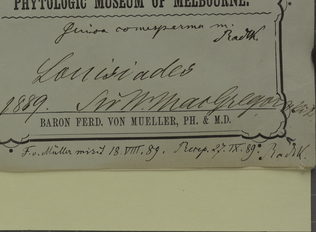 PHYTOLOGIC MUSEUM OF MELBOURNE.
comesperma m.
Radlk.
Louisiades
1889. Sir W. MacGregor
BARON FERD. VON MUELLER, PH. & M.D.
F. v. Müller misit 18.VIII.89. Recep. 27.IX.89. Radlk.